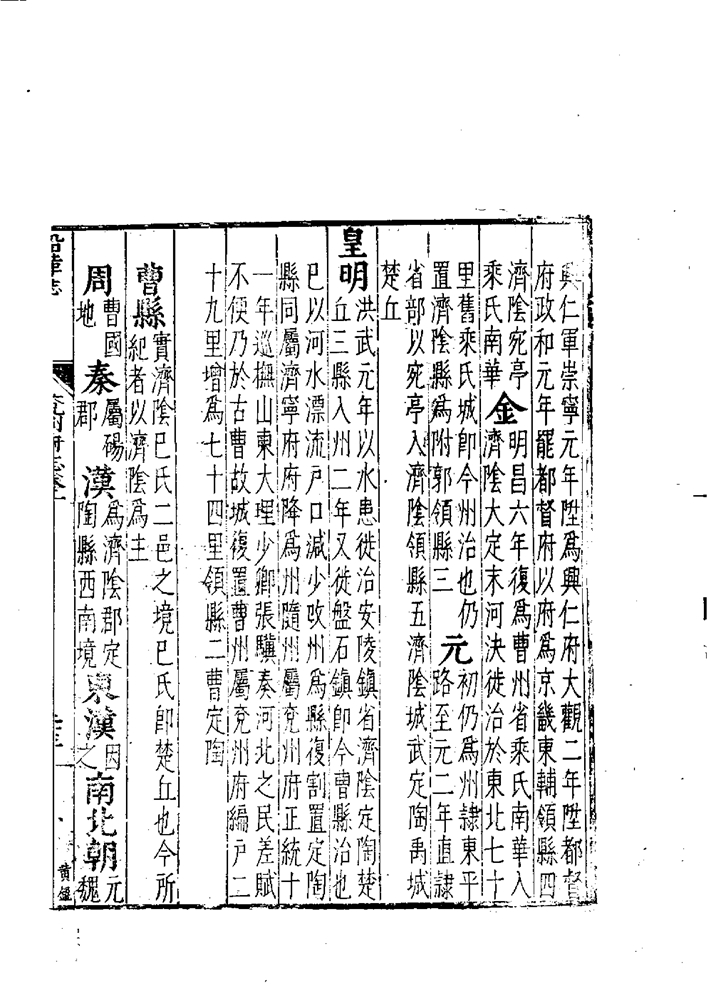 興仁軍崇寧元年陞爲興仁府大觀二年陞都督
府政和元年罷都督府以府爲京畿東輔領縣四
濟陰宛亭
乘氏南華
金
明昌六年復爲曹州省乘氏南華入
濟陰大定末河決徙治於東北七十
里舊乘氏城卽今州治也仍
置濟陰縣爲附郭領縣三
元
初仍爲州隷東平
路至元二年直隷
省部以宛亭入濟陰領縣五濟陰城武定陶禹城
楚丘
皇明
洪武元年以水患徙治安陵鎮省濟陰定陶楚
丘三縣入州二年又徙盤石鎮卽今曹縣治也
巳以河水漂流户口減少攺州爲縣復割置定陶
縣同屬濟寧府府降爲州隨州屬兖州府正統十
一年巡撫山東大理少卿張驥奏河北之民差賦
不便乃於古曹故城復置曹州屬兖州府編户二
十九里增爲七十四里領縣二曹定陶
曹縣
實濟陰巳氏二邑之境巳氏卽楚丘也今所
紀者以濟陰爲主
周
曹國
地
秦
屬碭
郡
漢
爲濟陰郡定
陶縣西南境
東漢
因
之
南北朝
元
魏